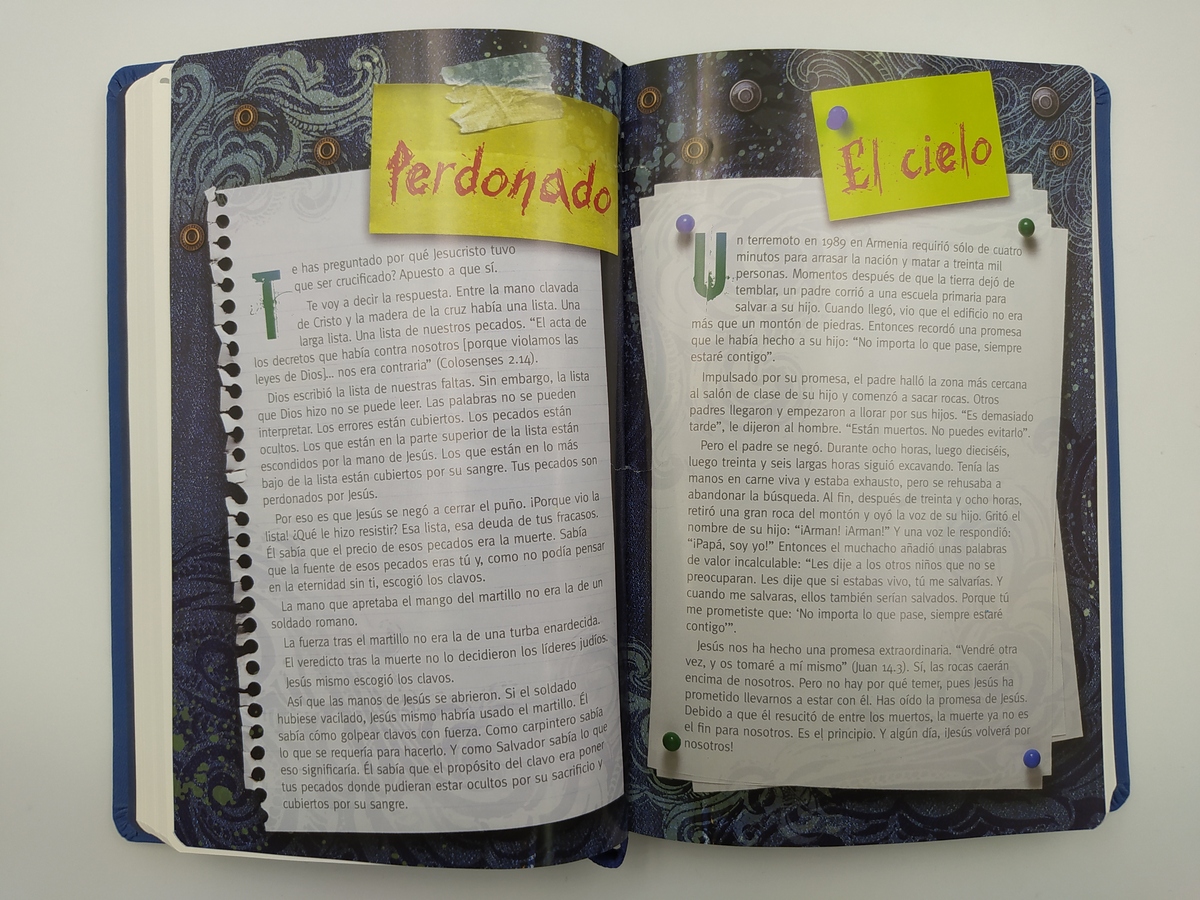 Perdonado
Te has preguntado por qué Jesucristo tuvo
que ser crucificado? Apuesto a que sí.
Te voy a decir la respuesta. Entre la mano clavada
de Cristo y la madera de la cruz había una lista. Una
larga lista. Una lista de nuestros pecados. “El acta de
los decretos que había contra nosotros [porque violamos las
leyes de Dios]... nos era contraria” (Colosenses 2.14).
Dios escribió la lista de nuestras faltas. Sin embargo, la lista
que Dios hizo no se puede leer. Las palabras no se pueden
interpretar. Los errores están cubiertos. Los pecados están
ocultos. Los que están en la parte superior de la lista están
escondidos por la mano de Jesús. Los que están en lo más
bajo de la lista están cubiertos por su sangre. Tus pecados son
perdonados por Jesús.
Por eso es que Jesús se negó a cerrar el puño. ¡Porque vio la
lista! ¿Qué le hizo resistir? Esa lista, esa deuda de tus fracasos.
Él sabía que el precio de esos pecados era la muerte. Sabía
que la fuente de esos pecados eras tú y, como no podía pensar
en la eternidad sin ti, escogió los clavos.
La mano que apretaba el mango del martillo no era la de un
soldado romano.
La fuerza tras el martillo no era la de una turba enardecida.
El veredicto tras la muerte no lo decidieron los líderes judíos.
Jesús mismo escogió los clavos.
Así que las manos de Jesús se abrieron. Si el soldado
hubiese vacilado, Jesús mismo habría usado el martillo. Él
sabía cómo golpear clavos con fuerza. Como carpintero sabía
lo que se requería para hacerlo. Y como Salvador sabía lo que
eso significaría. Él sabía que el propósito del clavo era poner
tus pecados donde pudieran estar ocultos por su sacrificio y
cubiertos por su sangre.
El cielo
Un terremoto en 1989 en Armenia requirió sólo de cuatro
minutos para arrasar la nación y matar a treinta mil
personas. Momentos después de que la tierra dejó de
temblar, un padre corrió a una escuela primaria para
salvar a su hijo. Cuando llegó, vio que el edificio no era
más que un montón de piedras. Entonces recordó una promesa
que le había hecho a su hijo: “No importa lo que pase, siempre
estaré contigo”.
Impulsado por su promesa, el padre halló la zona más cercana
al salón de clase de su hijo y comenzó a sacar rocas. Otros
padres llegaron y empezaron a llorar por sus hijos. “Es demasiado
tarde”, le dijeron al hombre. “Están muertos. No puedes evitarlo”.
Pero el padre se negó. Durante ocho horas, luego dieciséis,
luego treinta y seis largas horas siguió excavando. Tenía las
manos en carne viva y estaba exhausto, pero se rehusaba a
abandonar la búsqueda. Al fin, después de treinta y ocho horas,
retiró una gran roca del montón y oyó la voz de su hijo. Gritó el
nombre de su hijo: “¡Arman! ¡Arman!” Y una voz le respondió:
“¡Papá, soy yo!” Entonces el muchacho añadió unas palabras
de valor incalculable: “Les dije a los otros niños que no se
preocuparan. Les dije que si estabas vivo, tú me salvarías. Y
cuando me salvaras, ellos también serían salvados. Porque tú
me prometiste que: ‘No importa lo que pase, siempre estaré
contigo’”.
Jesús nos ha hecho una promesa extraordinaria. “Vendré otra
vez, y os tomaré a mí mismo” (Juan 14.3). Sí, las rocas caerán
encima de nosotros. Pero no hay por qué temer, pues Jesús ha
prometido llevarnos a estar con él. Has oído la promesa de Jesús.
Debido a que él resucitó de entre los muertos, la muerte ya no es
el fin para nosotros. Es el principio. Y algún día, ¡Jesús volverá por
nosotros!